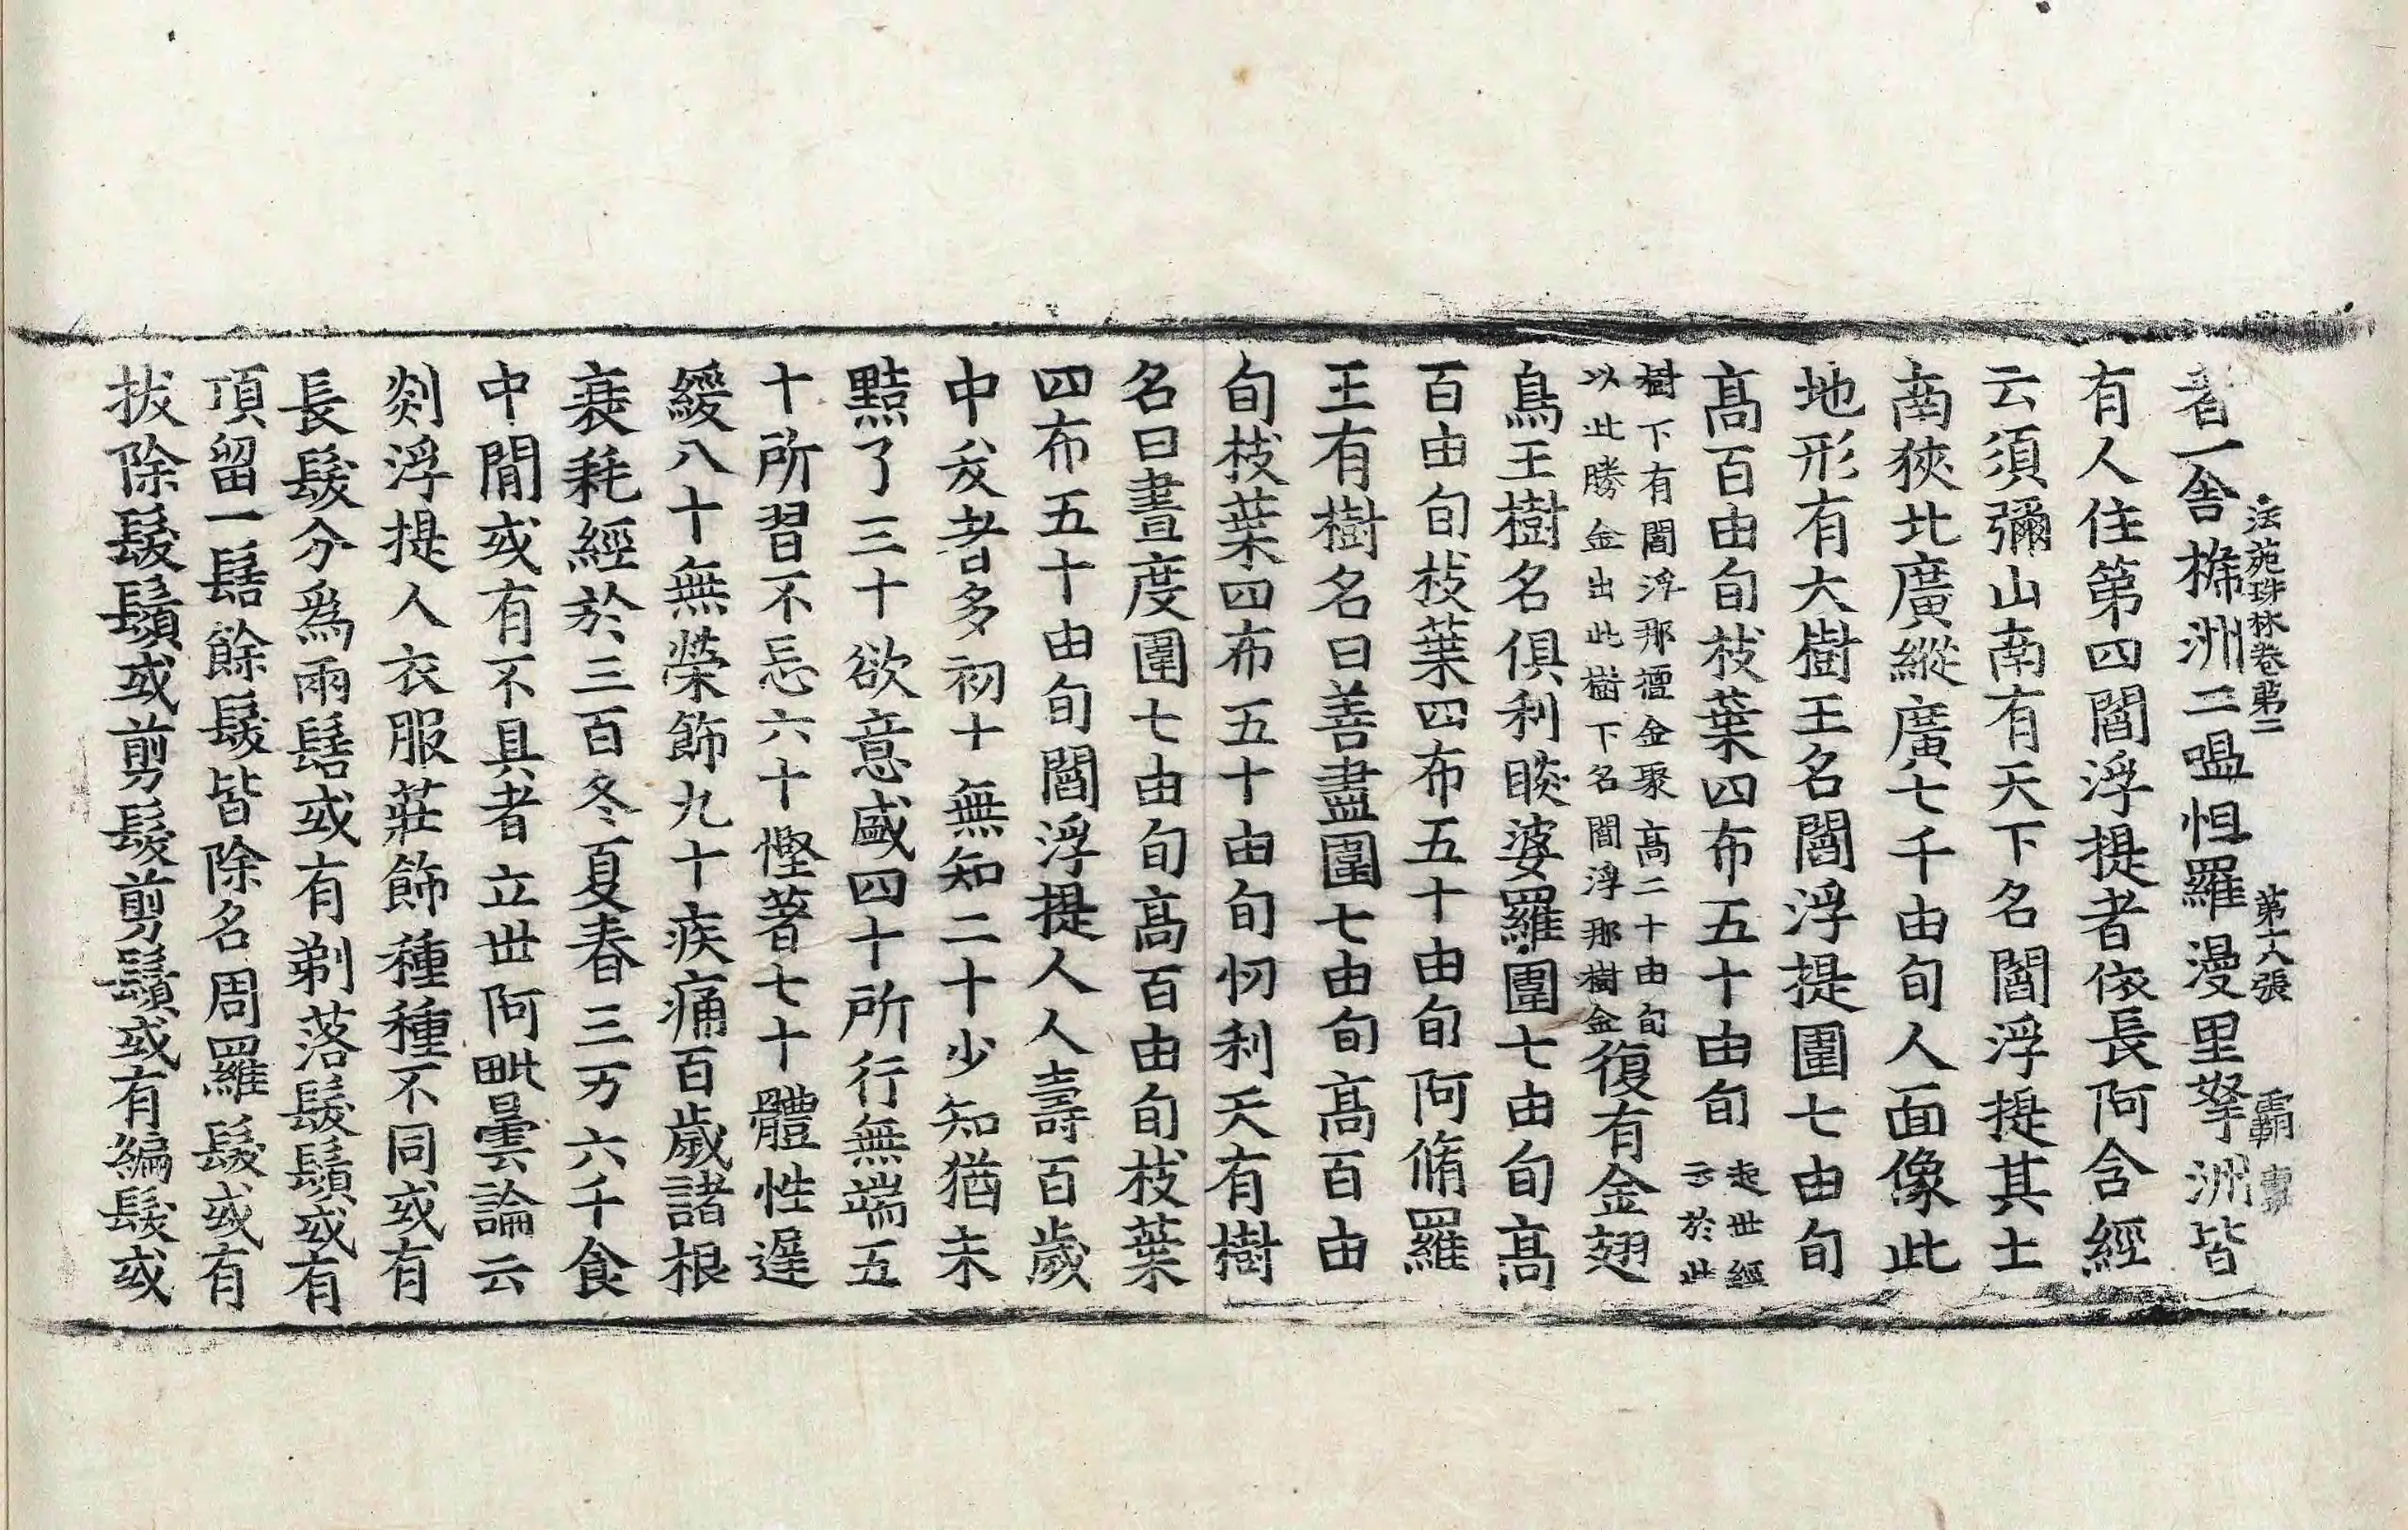 法苑珠林卷第二 第十六張 霸
者一舍擲洲二嗢怛羅漫里拏洲皆
有人住第四閻浮提者依長阿含經
云須彌山南有天下名閻浮提其土
南狹北廣縱廣七千由旬人面像此
地形有大樹王名閻浮提圍七由旬
高百由旬枝葉四布五十由旬起世經云於此
樹下有閻浮那檀金聚高二十由旬以此勝金出此樹下名閻浮那樹金復有金翅
鳥王樹名俱利睒婆羅圍七由旬高
百由旬枝葉四布五十由旬阿脩羅
王有樹名曰善盡圍七由旬高百由
旬枝葉四布五十由旬忉利天有樹
名曰晝度圍七由旬高百由旬枝葉
四布五十由旬閻浮提人人壽百歲
中夭者多初十無知二十少知猶未
黠了三十欲意盛四十所行無端五
十所習不忘六十慳著七十體性遲
緩八十無榮飾九十疾痛百歲諸根
衰耗經於三百冬夏春三万六千食
中閒或有不具者立世阿毗曇論云
剡浮提人衣服莊飾種種不同或有
長髮分爲兩髻或有剃落髮鬚或有
頂留一髻餘髮皆除名周羅髮或有
拔除髮鬚或剪髮剪鬚或有編髮或